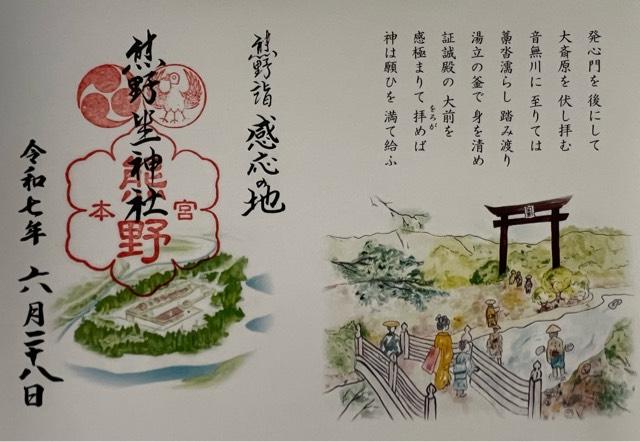 発心門を 後にして
大斎原を 伏し拝む
音無川に 至りては
藁沓濡らし 踏み渡り
湯立の釜で 身を清め
証誠殿の 大前を
感極まりて 拝めば
をろが
神は願ひを 満て給ふ
熊野詣 感応の地
熊野坐神社
熊野
本宮
令和七年 六月二十八日